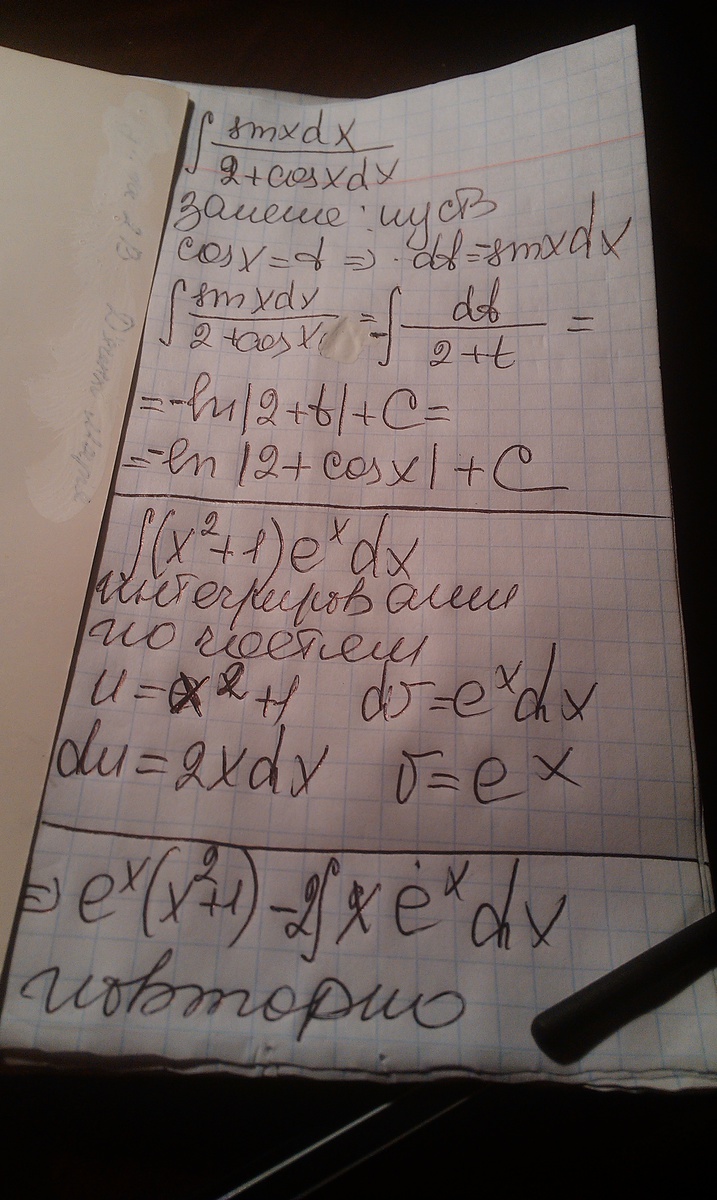 ∫ sinxdx / 2+cosxdx
замена: пусть
cosx=t ⇒ dt=-sinxdx
∫ sinxdx / 2+cosx = -∫ dt / 2+t =
=-ln|2+t|+C=
=-ln|2+cosx|+C
∫(x²+1)eˣdx
интегрирования
по частям
u=x²+1 dv=eˣdx
du=2xdx v=eˣ
⇒ eˣ(x²+1)-2∫xeˣdx
повторно